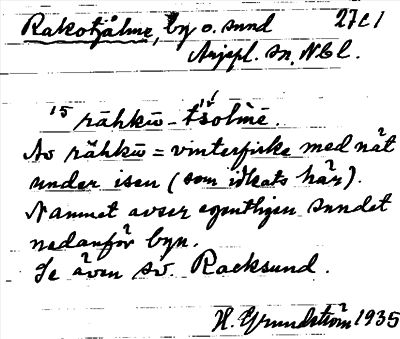 Rakotjålme, by o. sund 27C1
Arjepl. sn, Nbl.
15 rähkū-tšolmē.
Av rähkū = vinterfiske med nät
under isen (som idkats här).
Namnet avser egentligen sundet
nedanför byn.
Se även sv. Racksund.
H. Grundström 1935